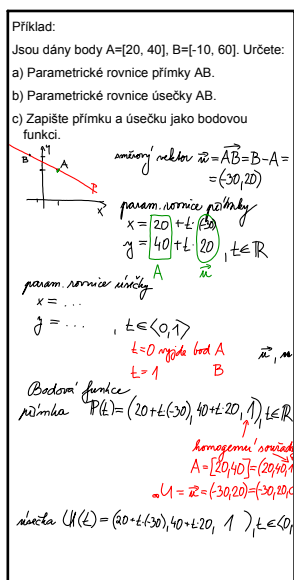 Příklad:
Jsou dány body A=[20, 40], B=[-10, 60]. Určete:
a) Parametrické rovnice přímky AB.
b) Parametrické rovnice úsečky AB.
c) Zapište přímku a úsečku jako bodovou
funkci.
B A y x p
směrový vektor u⃗ = AB⃗ = B-A =
= (-30,20)
param. rovnice přímky
x = 20 + t·(-30)
y = 40 + t·20 , t∈ℝ
A u⃗
param. rovnice úsečky
x = ...
y = ... , t∈⟨0,1⟩
t=0 vyjde bod A
t=1 B
u⃗,
Bodová funkce
přímka P(t) = (20+t·(-30), 40+t·20, 1), t∈ℝ
homogenní souřad
A = [20,40] = (20,40,1
∞U = u⃗ = (-30,20) = (-30,20,0
úsečka U(t) = (20+t·(-30), 40+t·20, 1 ), t∈⟨0,